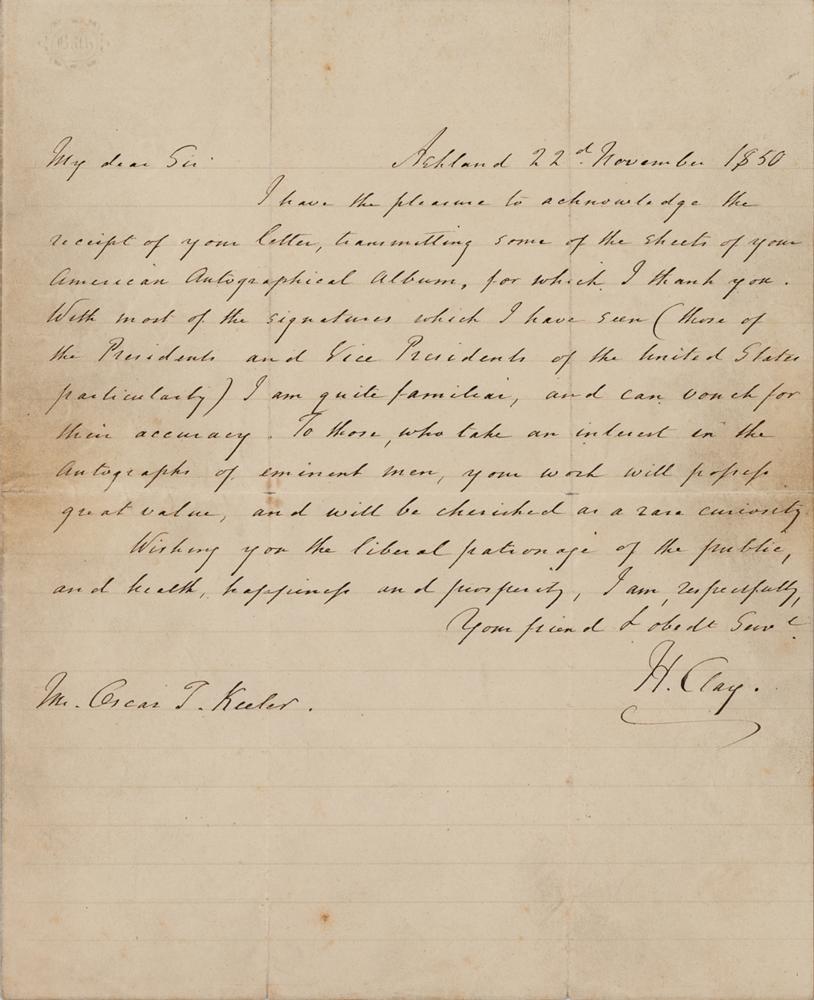 Bath
My dear Sir Ashland 22d. November 1850
I have the pleasure to acknowledge the
receipt of your letter, transmitting some of the sheets of your
American Autographical Album, for which I thank you.
With most of the signatures which I have seen (those of
the Presidents and Vice Presidents of the United States
particularly) I am quite familiar, and can vouch for
their accuracy. To those, who take an interest in the
Autographs of eminent men, your work will possess
great value, and will be cherished as a rare curiosity
Wishing you the liberal patronage of the public,
and health, happiness and prosperity, I am, respectfully,
Your friend & obedt Servt.
H. Clay.
Mr. Oscar T. Keeler.